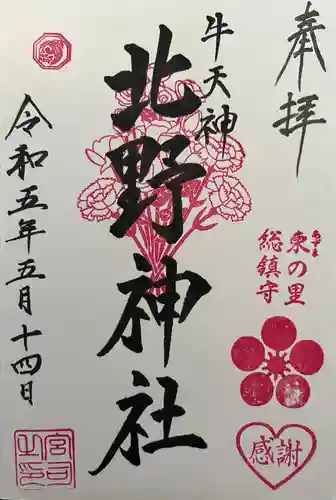 奉拝
あずま
東の里
総鎮守
感謝
牛天神
北野神社
令和五年五月十四日
宮司之印